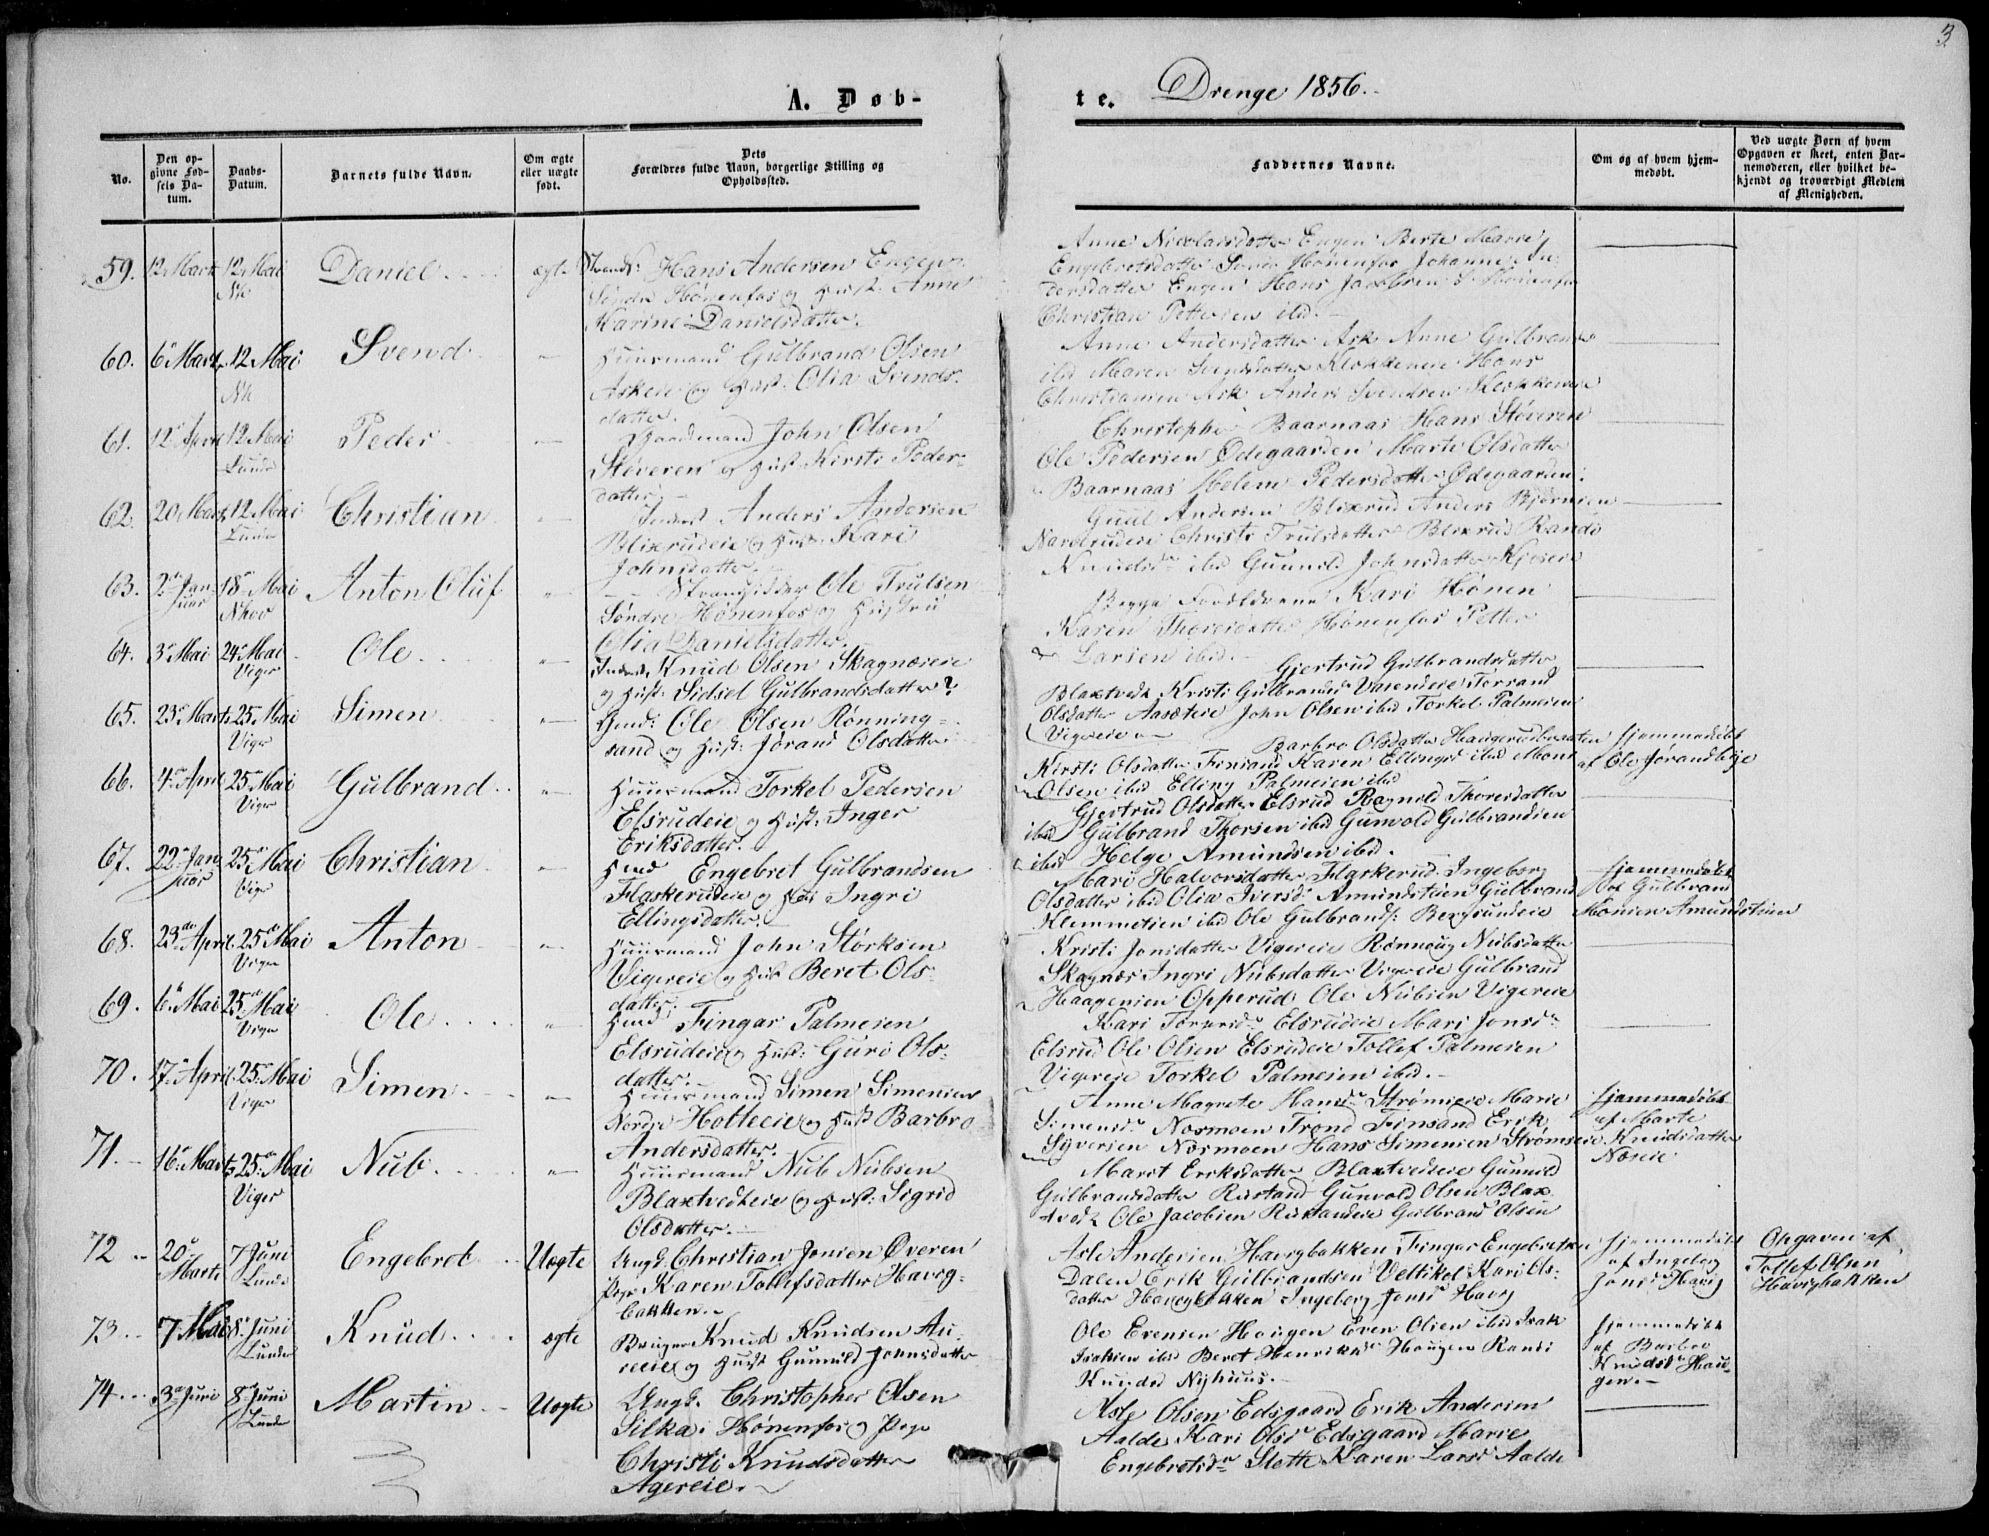 3
A. Døb-
te.
Drenge 1856.
No.
Den op-
givne Fød-
sels Da-
tum.
Daabs-
Datum.
Barnets fulde Navn.
Om ægte
eller uægte
født.
Dets
Forældres fulde Navn, borgerlige Stilling og
Opholdssted.
Faddernes Navne.
Om og af hvem hjem-
medøbt.
Ved uægte Børn af hvem
Opgaven er skeet, enten Bar-
nemoderen, eller hvilket be-
kjendt og troværdigt Medlem
af Menigheden.
59. 12 Marts 12 Mai Daniel ægte Hans Andersen Engen
Søndre Hønenfos og Hust. Anne
Karine Danielsdatter.
Anne Nicolaisdatter Engen Berte Marie
Engebretsdatter Søndre Hønenfos Johanne An-
dersdatter Engen Hans Jacobsen S. Hønenfos
Christian Pettersen ibd.
60. 6 Marts 12 Mai Svend Huusmand Gulbrand Olsen
Askeie og Hust. Olia Svends-
datter.
Anne Andersdatter Ask Anne Gulbrands
ibd Maren Svendsdatter Klokkereie Hans
Christiansen Ask Anders Svendsen Klokkereie
61. 12 April 12 Mai
Lunde
Peder Gaardmand John Olsen
Støveren og Hust. Kirsti Peder-
datter.
Christopher Baarnaas Hans Støveren
Ole Pedersen Ødegaarden Marte Olsdatter
Baarnaas Helene Pedersdatter Ødegaarden.
62. 20 Marts 12 Mai
Lunde
Christian Inderst Anders Andersen
Blixrudeie og Hust. Kari
Johnsdatter.
Guul Andersen Blixrud Anders Bjørnsen
Christi Trulsdatter Blixrud Randi
Knudsdr ibd Gunnild Johnsdatter
63. 2 Jan-
uar 18 Mai
Anton Oluf Strandsidder Ole Trulsen
Søndre Hønenfos og Hustru
Olia Danielsdatter
Begge Forældrene Kari Hønen
Karen Thoresdatter Hønenfos Petter
Larsen ibd.
64. 3 Mai 24 Mai
Viger
Ole Inderst Knud Olsen Skagnæseie
og Hust. Sidsel Gulbrandsdatter
Gjertrud Gulbrandsdatter
Blaxtvedt Kristi Gulbrandsd Torsand
Olsdatter Aasæteie John Olsen ibd Torkel Palmesen
Vigereie
65. 23 Marts 25 Mai
Viger
Simen Gmd: Ole Olsen Rønning-
sand og Hust: Jørand Olsdatter
Barbro Olsdatter Haugerudbraaten
Kirsti Olsdatter Finsand Karen Ellingsd ibd Mons
Olsen ibd Elling Palmesen ibd
Hjemmedøbt
af Ole Jørandbye
66. 4 April 25 Mai
Viger
Gulbrand Huusmand Torkel Pedersen
Elsrudeie og Hust: Inger
Eriksdatter.
Gjertrud Olsdatter Elsrud Ragnild Thoresdatter
ibd Gulbrand Thorsen ibd Gunvold Gulbrandsen
ibd Helge Amundsen ibd.
67. 22 Jan
uar 25 Mai
Viger
Christian Hmd Engebret Gulbrandsen
Flaskerudeie og Hust Ingri
Ellingsdatter.
Mari Halvorsdatter Flaskerud Ingeborg
Olsdatter ibd Olia Iversd Amundstuen Gulbrand
Klemmetsen ibd Ole Gulbrands: Bergsundeie
Hjemmedøbt
af Gulbrand
Monsen Amundstuen
68. 23 April 25 Mai
Viger
Anton Huusmand John Størksen
Vigereie og Hust Beret Ols-
datter.
Kristi Jonsdatter Vigereie Rønnaug Nubsdatter
Skagnæs Ingri Nubsdatter Vigereie Gulbrand
Haagensen Opperud Ole Nubsen Vigereie
69. 6 Mai 25 Mai
Viger
Ole Hmd Fingar Palmesen
Elsrudeie og Hust: Guri Ols-
datter.
Kari Elsrudeie Mari Jonsd
Elsrud Ole Olsen Elsrudeie Tollef Palmesen
Vigereie Torkel Palmesen ibd.
70. 17 April 25 Mai
Viger
Simen Huusmand Simen Simensen
Nordre Holteeie og Hust Barbro
Andersdatter.
Anne Magrete Hansdr Strømseie Marie
Simensdr Næsmoen Trond Finsand Erik
Syversen Næsmoen Hans Simensen Strømseie
Hjemmedøbt
af Marte
Knudsdatter
Næseie
71. 16 Marts 25 Mai
Viger
Nub Huusmand Nub Nubsen
Blaxtvedteie og Hust: Sigrid
Olsdatter.
Marit Eriksdatter Blaxtvedteie Gunnild
Gulbrandsdatter Rustand Gunvold Olsen Blax-
tvedt Ole Jacobsen Rustandeie Gulbrand Olsen
72 20
Marts 7 Juni
Lunde
Engebret Uægte Ungk. Christian Jonsen Øveren
Pige Karen Tollefsdatter Haverg-
bakken.
Asle Andersen Havergbakken Fingar Engebretsen
Dalen Erik Gulbrandsen Veltikol Kari Ols-
datter Havergbakken Ingeborg Jonsd Haverg
Hjemmedøbt
af Ingeborg
Jonsd Haverg
Opgaven af
Tollef Olsen
Havergbakken
73 7 Mai 8 Juni
Lunde
Knud ægte Bruger Knud Knudsen Au-
reeie og Hust Gunnild Johnsdatter
Ole Evensen Haugen Even Olsen ibd Isak
Isaksen ibd Beret Henriksdr Haugen Randi
Knudsd Nyhuus.
Hjemmedøbt
af Barbro
Knudsd Hau-
gen.
74 3 Juni 8 Juni
Lunde
Martin Uægte Ungk. Christopher Olsen
Silka i Hønenfos og Pige
Christi Knudsdatter
Agereie.
Asle Olsen Edsgaard Erik Andersen
Aalde Kari Olsdr Edsgaard Marie
Engebretsdr Slette Karen Larsd Aalde